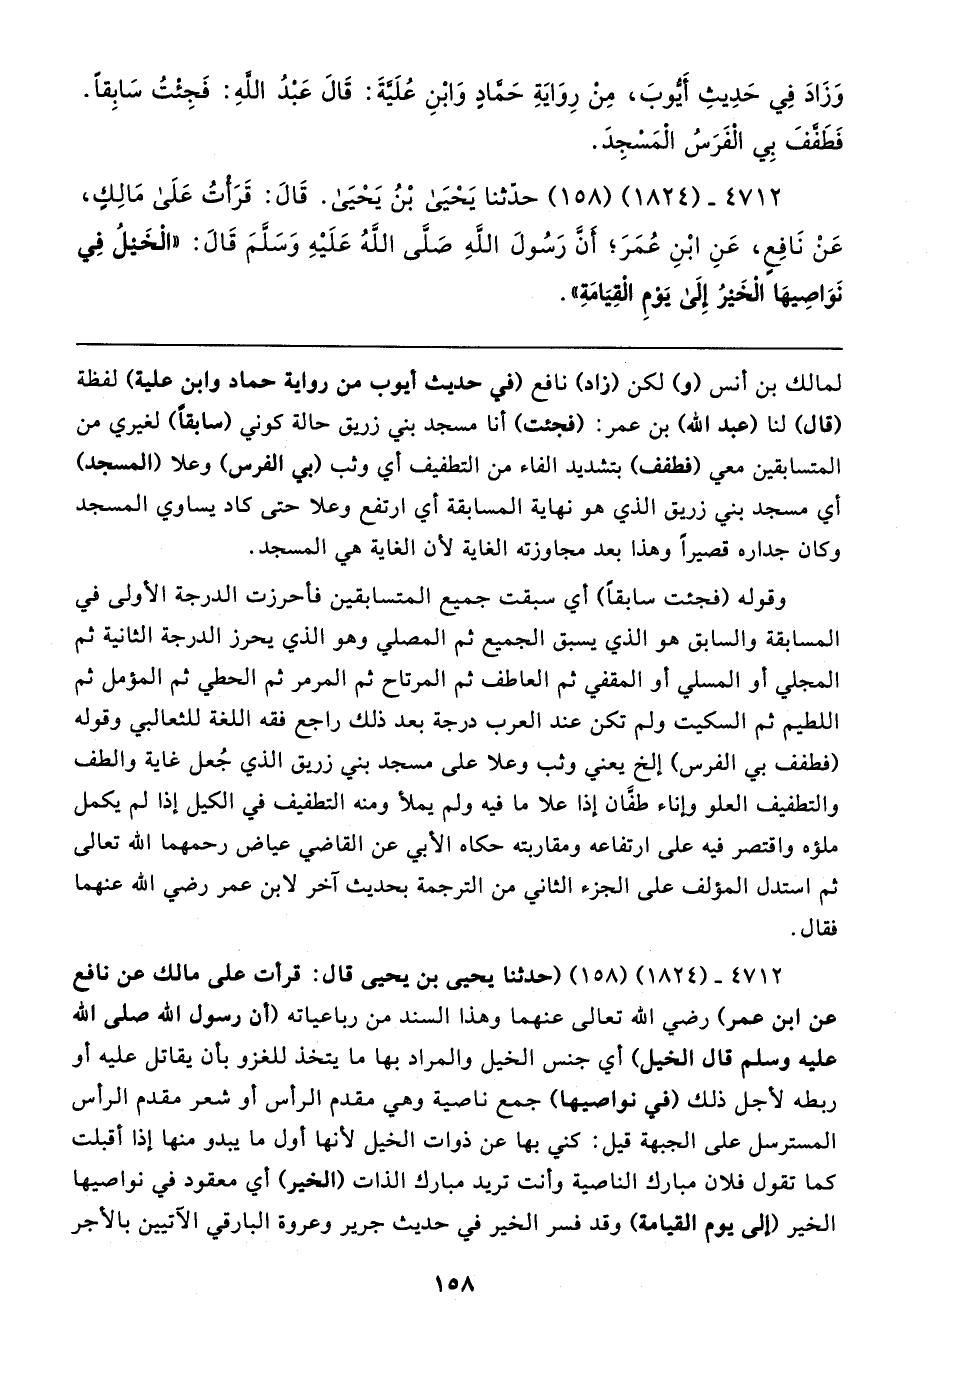 وَزَادَ فِي حَدِيثِ أَيُّوبَ، مِنْ رِوَايَةِ حَمَّادٍ وَابْنِ عُلَيَّةَ: قَالَ عَبْدُ اللَّهِ: فَجِئْتُ سَابِقاً.
فَطَفَّفَ بِي الْفَرَسُ الْمَسْجِدَ.
٤٧١٢ ـ (١٨٢٤) (١٥٨) حدّثنا يَحْيَىٰ بْنُ يَحْيَىٰ. قَالَ: قَرَأْتُ عَلَىٰ مَالِكٍ،
عَنْ نَافِعٍ، عَنِ ابْنِ عُمَرَ؛ أَنَّ رَسُولَ اللَّهِ صَلَّى اللَّهُ عَلَيْهِ وَسَلَّمَ قَالَ: «الْخَيْلُ فِي
نَوَاصِيهَا الْخَيْرُ إِلَىٰ يَوْمِ الْقِيَامَةِ».
لمالك بن أنس (و) لكن (زاد) نافع (في حديث أيوب من رواية حماد وابن علية) لفظة
(قال) لنا (عبد الله) بن عمر: (فجئت) أنا مسجد بني زريق حالة كوني (سابقاً) لغيري من
المتسابقين معي (فطفف) بتشديد الفاء من التطفيف أي وثب (بي الفرس) وعلا (المسجد)
أي مسجد بني زريق الذي هو نهاية المسابقة أي ارتفع وعلا حتى كاد يساوي المسجد
وكان جداره قصيراً وهذا بعد مجاوزته الغاية لأن الغاية هي المسجد.
وقوله (فجئت سابقاً) أي سبقت جميع المتسابقين فأحرزت الدرجة الأولى في
المسابقة والسابق هو الذي يسبق الجميع ثم المصلي وهو الذي يحرز الدرجة الثانية ثم
المجلي أو المسلي أو المقفي ثم العاطف ثم المرتاح ثم المرمر ثم الحطي ثم المؤمل ثم
اللطيم ثم السكيت ولم تكن عند العرب درجة بعد ذلك راجع فقه اللغة للثعالبي وقوله
(فطفف بي الفرس) إلخ يعني وثب وعلا على مسجد بني زريق الذي جُعل غاية والطف
والتطفيف العلو وإناء طفَّان إذا علا ما فيه ولم يملأ ومنه التطفيف في الكيل إذا لم يكمل
ملؤه واقتصر فيه على ارتفاعه ومقاربته حكاه الأبي عن القاضي عياض رحمهما الله تعالى
ثم استدل المؤلف على الجزء الثاني من الترجمة بحديث آخر لابن عمر رضي الله عنهما
فقال.
٤٧١٢ ـ (١٨٢٤) (١٥٨) (حدثنا يحيى بن يحيى قال: قرأت على مالك عن نافع
عن ابن عمر) رضي الله تعالى عنهما وهذا السند من رباعياته (أن رسول الله صلى الله
عليه وسلم قال الخيل) أي جنس الخيل والمراد بها ما يتخذ للغزو بأن يقاتل عليه أو
ربطه لأجل ذلك (في نواصيها) جمع ناصية وهي مقدم الرأس أو شعر مقدم الرأس
المسترسل على الجبهة قيل: كني بها عن ذوات الخيل لأنها أول ما يبدو منها إذا أقبلت
كما تقول فلان مبارك الناصية وأنت تريد مبارك الذات (الخير) أي معقود في نواصيها
الخير (إلى يوم القيامة) وقد فسر الخير في حديث جرير وعروة البارقي الآتيين بالأجر
١٥٨